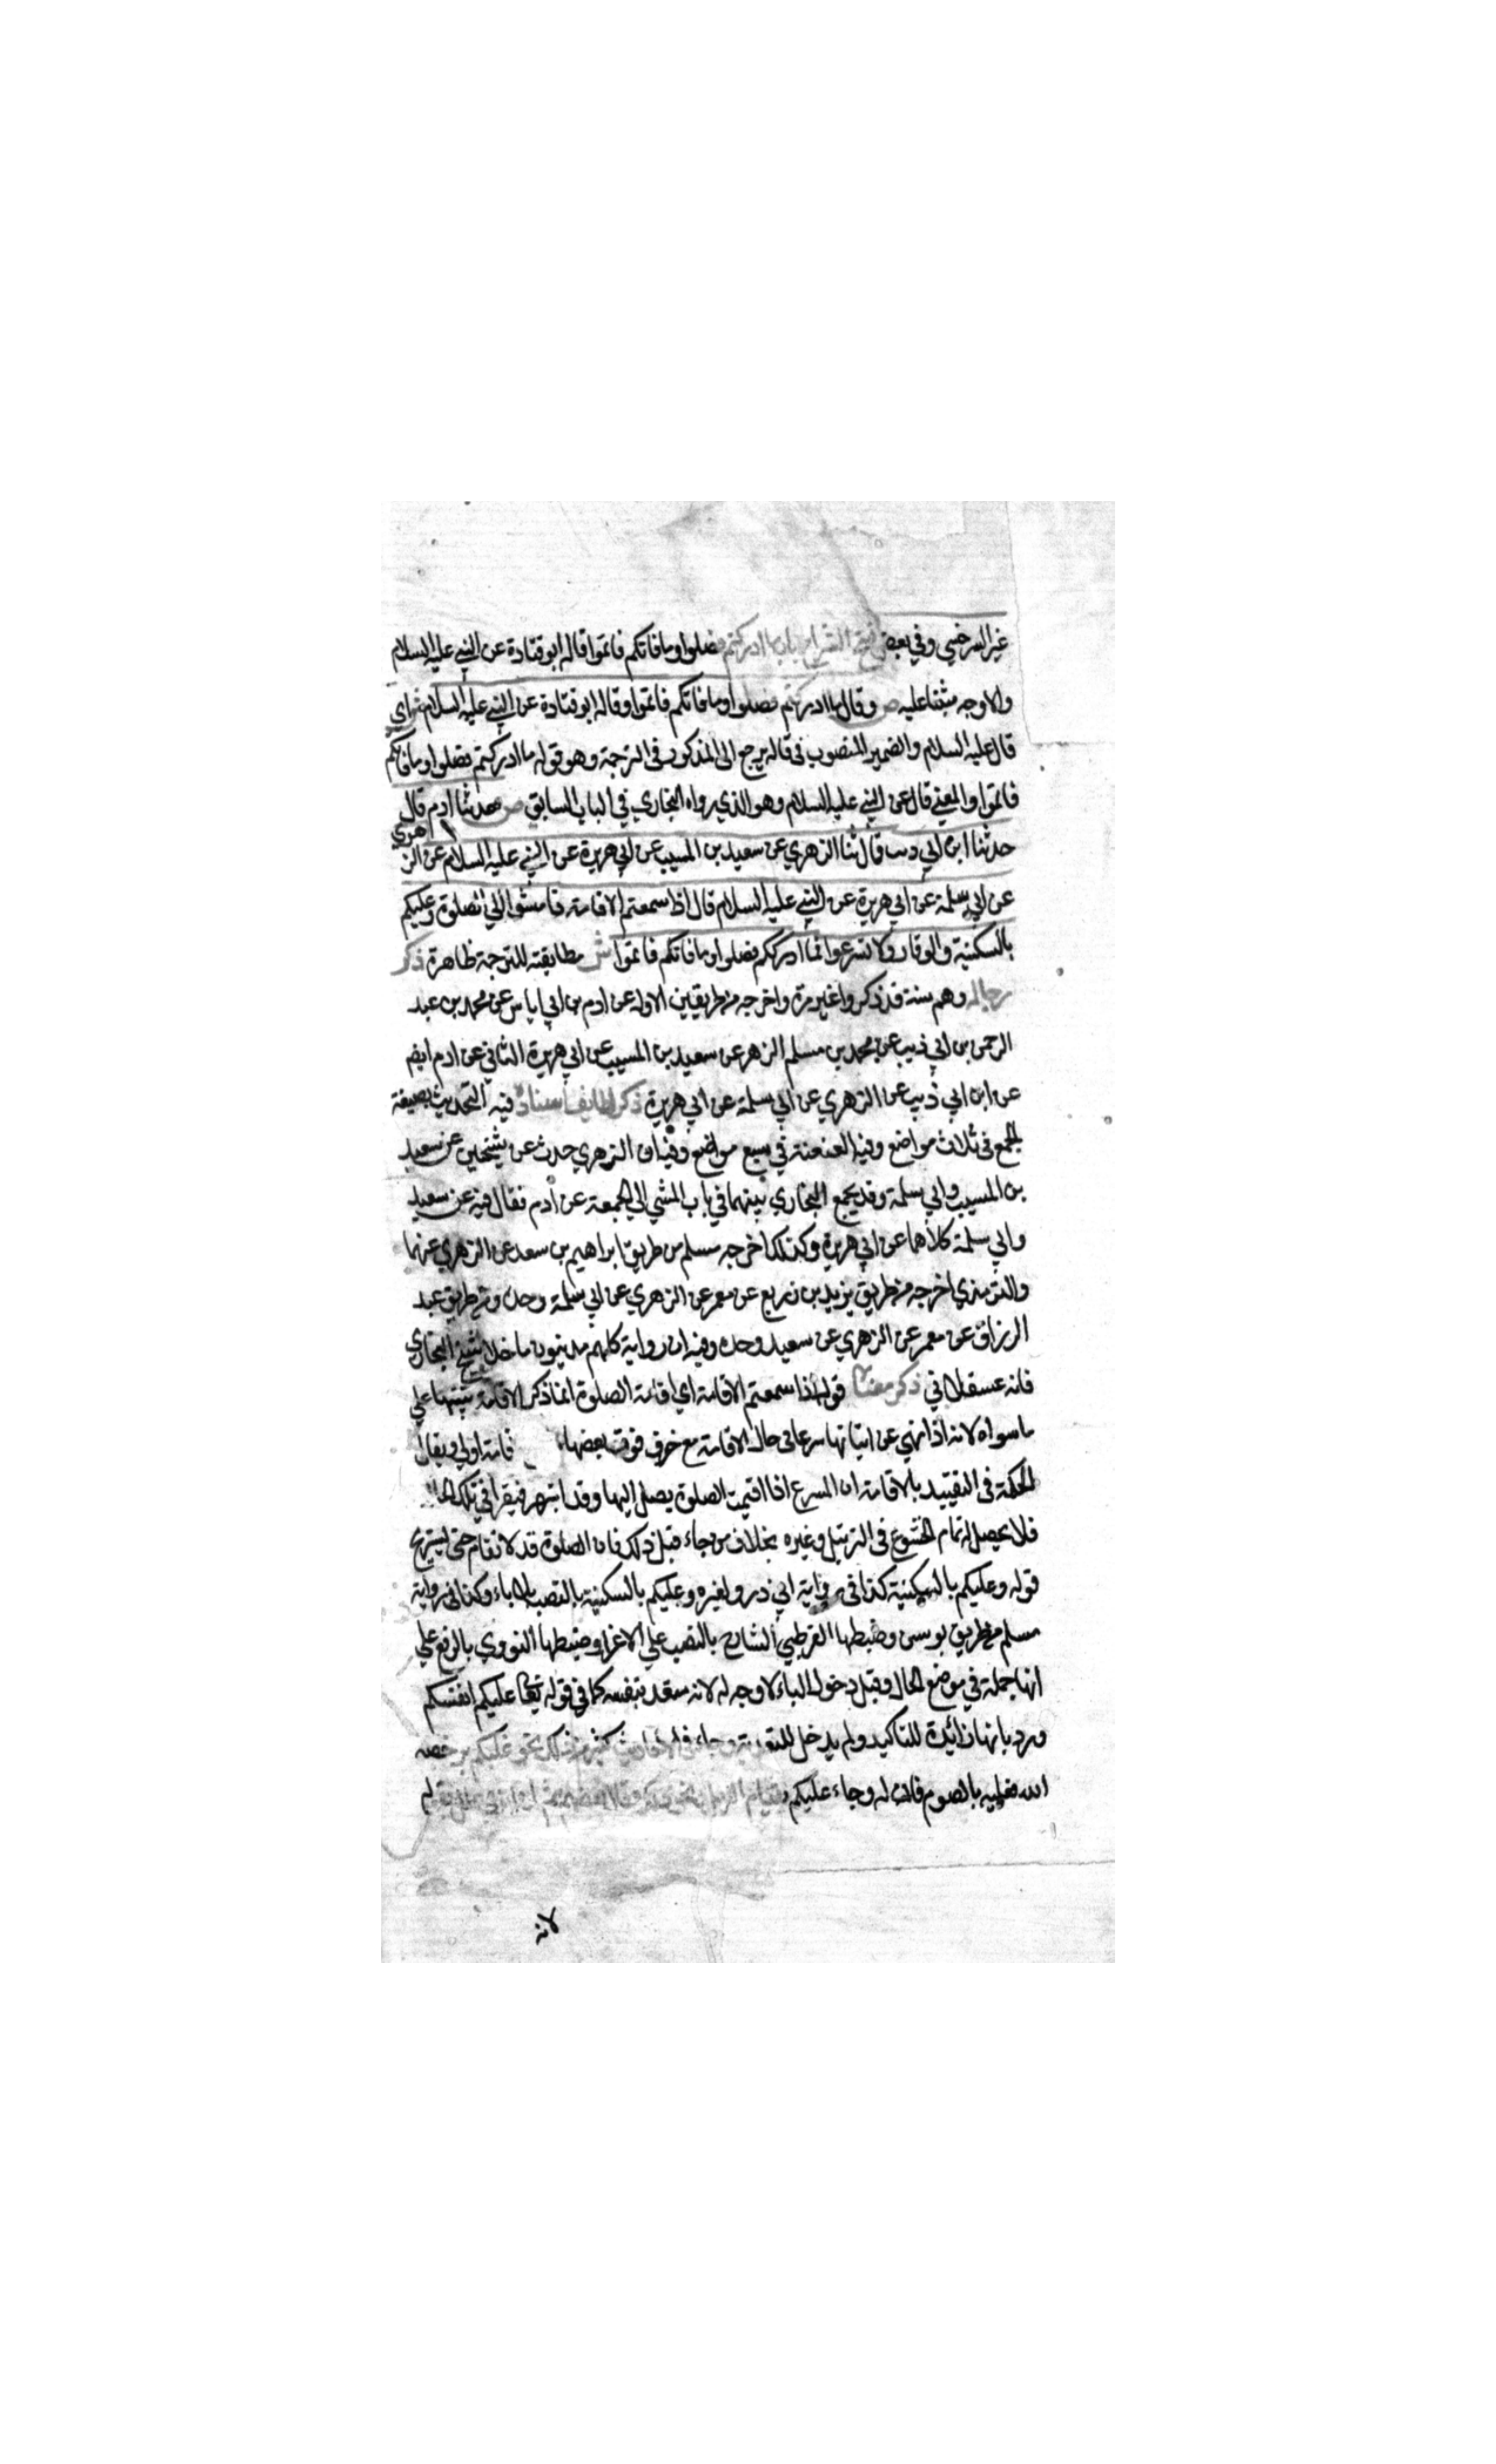 غير السرخسي وفي بعض نسخ الشراح باب ما ادركتم فصلوا وما فاتكم فاتموا قاله ابو قتادة عن النبي عليه السلام
والاوجه مبثنا عليه ص وقال ما ادركتم فصلوا وما فاتكم فاتموا وقاله ابو قتادة عن النبي عليه السلام ش اي
قال عليه السلام والضمير المنصوب في قاله يرجع الى المذكور في الترجمة وهو قوله ما ادركتم فصلوا وما فاتكم
فاتموا والمعني قال عن النبي عليه السلام وهو الذي رواه البخاري في الباب السابق ص حدثنا ادم قال
حدثنا ابن ابي ديب قال ثنا الزهري عن سعيد بن المسيب عن ابي هريرة عن النبي عليه السلام عن الزهري
عن ابي سلمة عن ابي هريرة عن النبي عليه السلام قال اذا سمعتم الاقامة فامشوا الي الصلوة وعليكم
بالسكنية والوقار ولا تسرعوا فما ادرككم فصلوا وما فاتكم فاتموا ش مطابقته للترجمة ظاهرة ذكر
رجاله وهم ستة قد ذكروا غير مرة واخرجه من طريقين الاول عن ادم بن ابي اياس عن محمد بن عبد
الرحمن بن ابي ذيب عن محمد بن مسلم الزهر عن سعيد بن المسيب عن ابي هريرة الثاني عن ادم ايضم
عن ابن ابي ذيب عن الزهري عن ابي سلمة عن ابي هريرة ذكر لطايف اسناده فيه التحديث بصيغة
الجمع في ثلاث مواضع وفيه العنعنة في سبع مواضع وفيه ان الزهري حدث عن شيخين عن سعيد
بن المسيب وابي سلمة وقد يجمع البخاري بينهما في باب المشي الي الجمعة عن ادم فقال فيه عن سعيد
وابي سلمة كلاهما عن ابي هريرة وكذلك اخرجه مسلم من طريق ابراهيم بن سعد عن الزهري عنهما
والترمذي اخرجه من طريق يزيد بن زريع عن معمر عن الزهري عن ابي سلمة وحده ومن طريق عبد
الرزاق عن معمر عن الزهري عن سعيد وحده وفيه ان رواية كلهم مدنيون ما خلا شيخ البخاري
فانه عسقلاني ذكر معناه قوله اذا سمعتم الاقامة اي اقامة الصلوة انما ذكر الاقامة تنبيها علي
ما سواه لانه اذا نهي عن اتيانها سرعا في حال الاقامة مع خوف فوت بعضها فامة اولي ويقال
الحكمة في التقييد بالاقامة ان المسرع اذا اقيمت الصلوة يصل اليها وقد انبهر فيقرا في تلك
فلا يحصل له تمام الخشوع في الترتيل وغيره بخلاف من جاء قبل ذلك فان الصلوة قد لا تقام حتى يستريح
قوله وعليكم بالسكينية كذا في رواية ابي ذر ولغيره وعليكم بالسكنية بالنصب بلا باء وكذا في رواية
مسلم من طريق يونس وضبطها القرطبي الشارح بالنصب علي الاغرا وضبطها النووي بالرفع علي
انها جملة في موضع الحال وقيل دخول الباء لا وجه له لانه متعد بنفسه كما في قوله تعا عليكم انفسكم
ورد بانها زائدة للتاكيد ولم يدخل للتعدية وجاء في الاحاديث كثير من ذلك نحو عليكم برخصة
الله فعليه بالصوم فانه له وجاء عليكم بقيام الليل
لانه